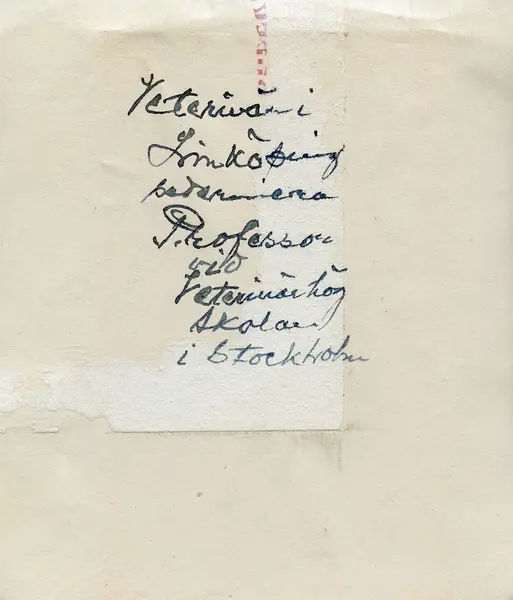 Veterinär i
Linköping
sedermera
Professor
vid
Veterinärhög
skolan
i Stockholm